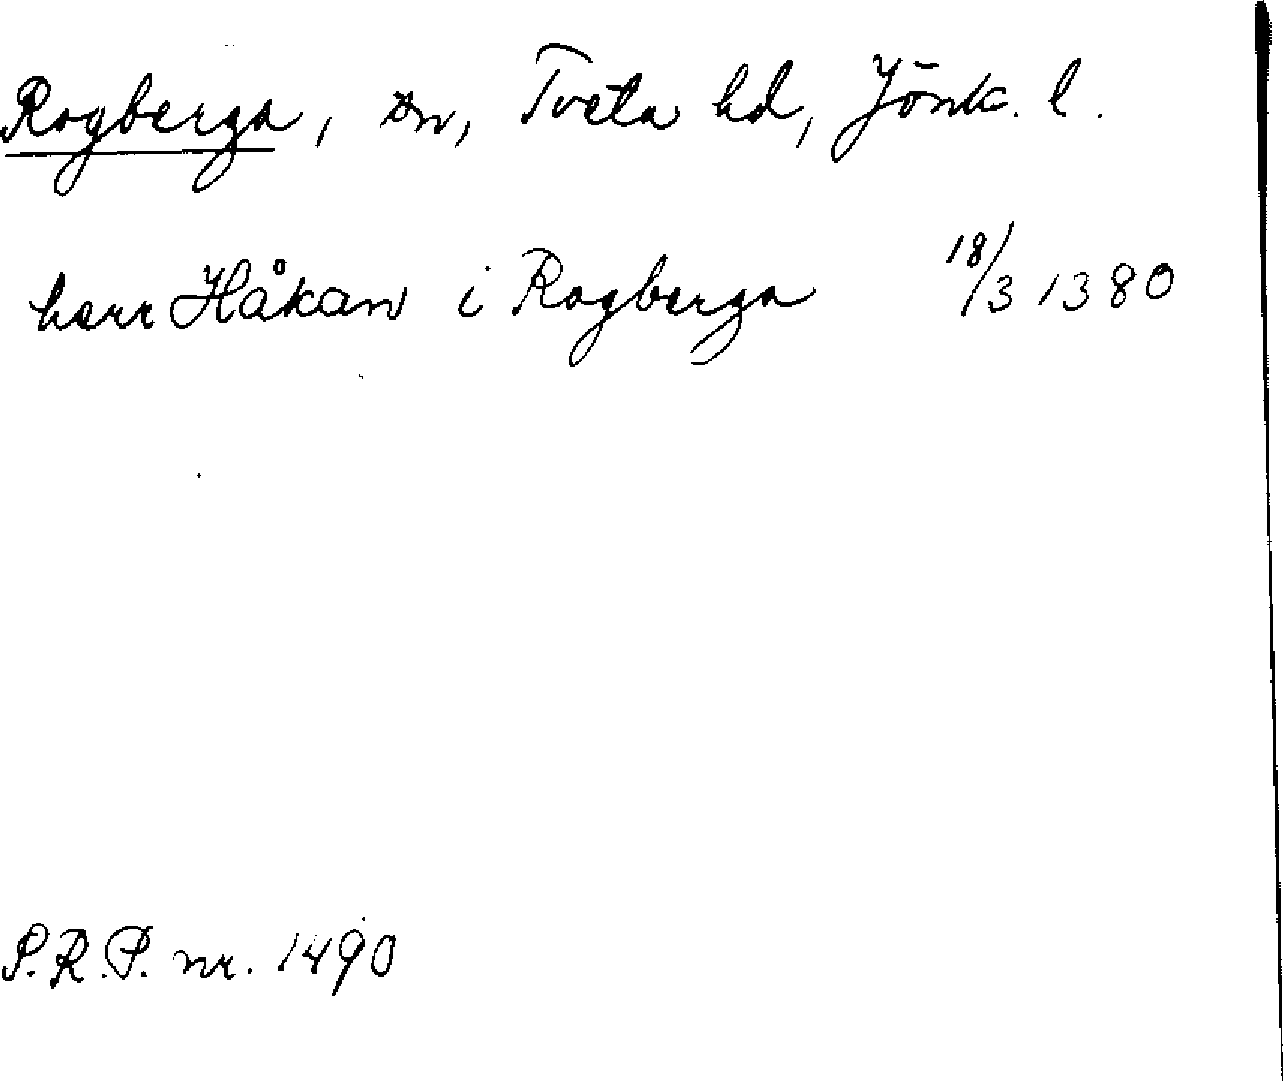 Rogberga, sn, Tveta hd, Jönk. l.
herr Håkan i Rogberga 18/3 1380
S.R.P. nr. 1490